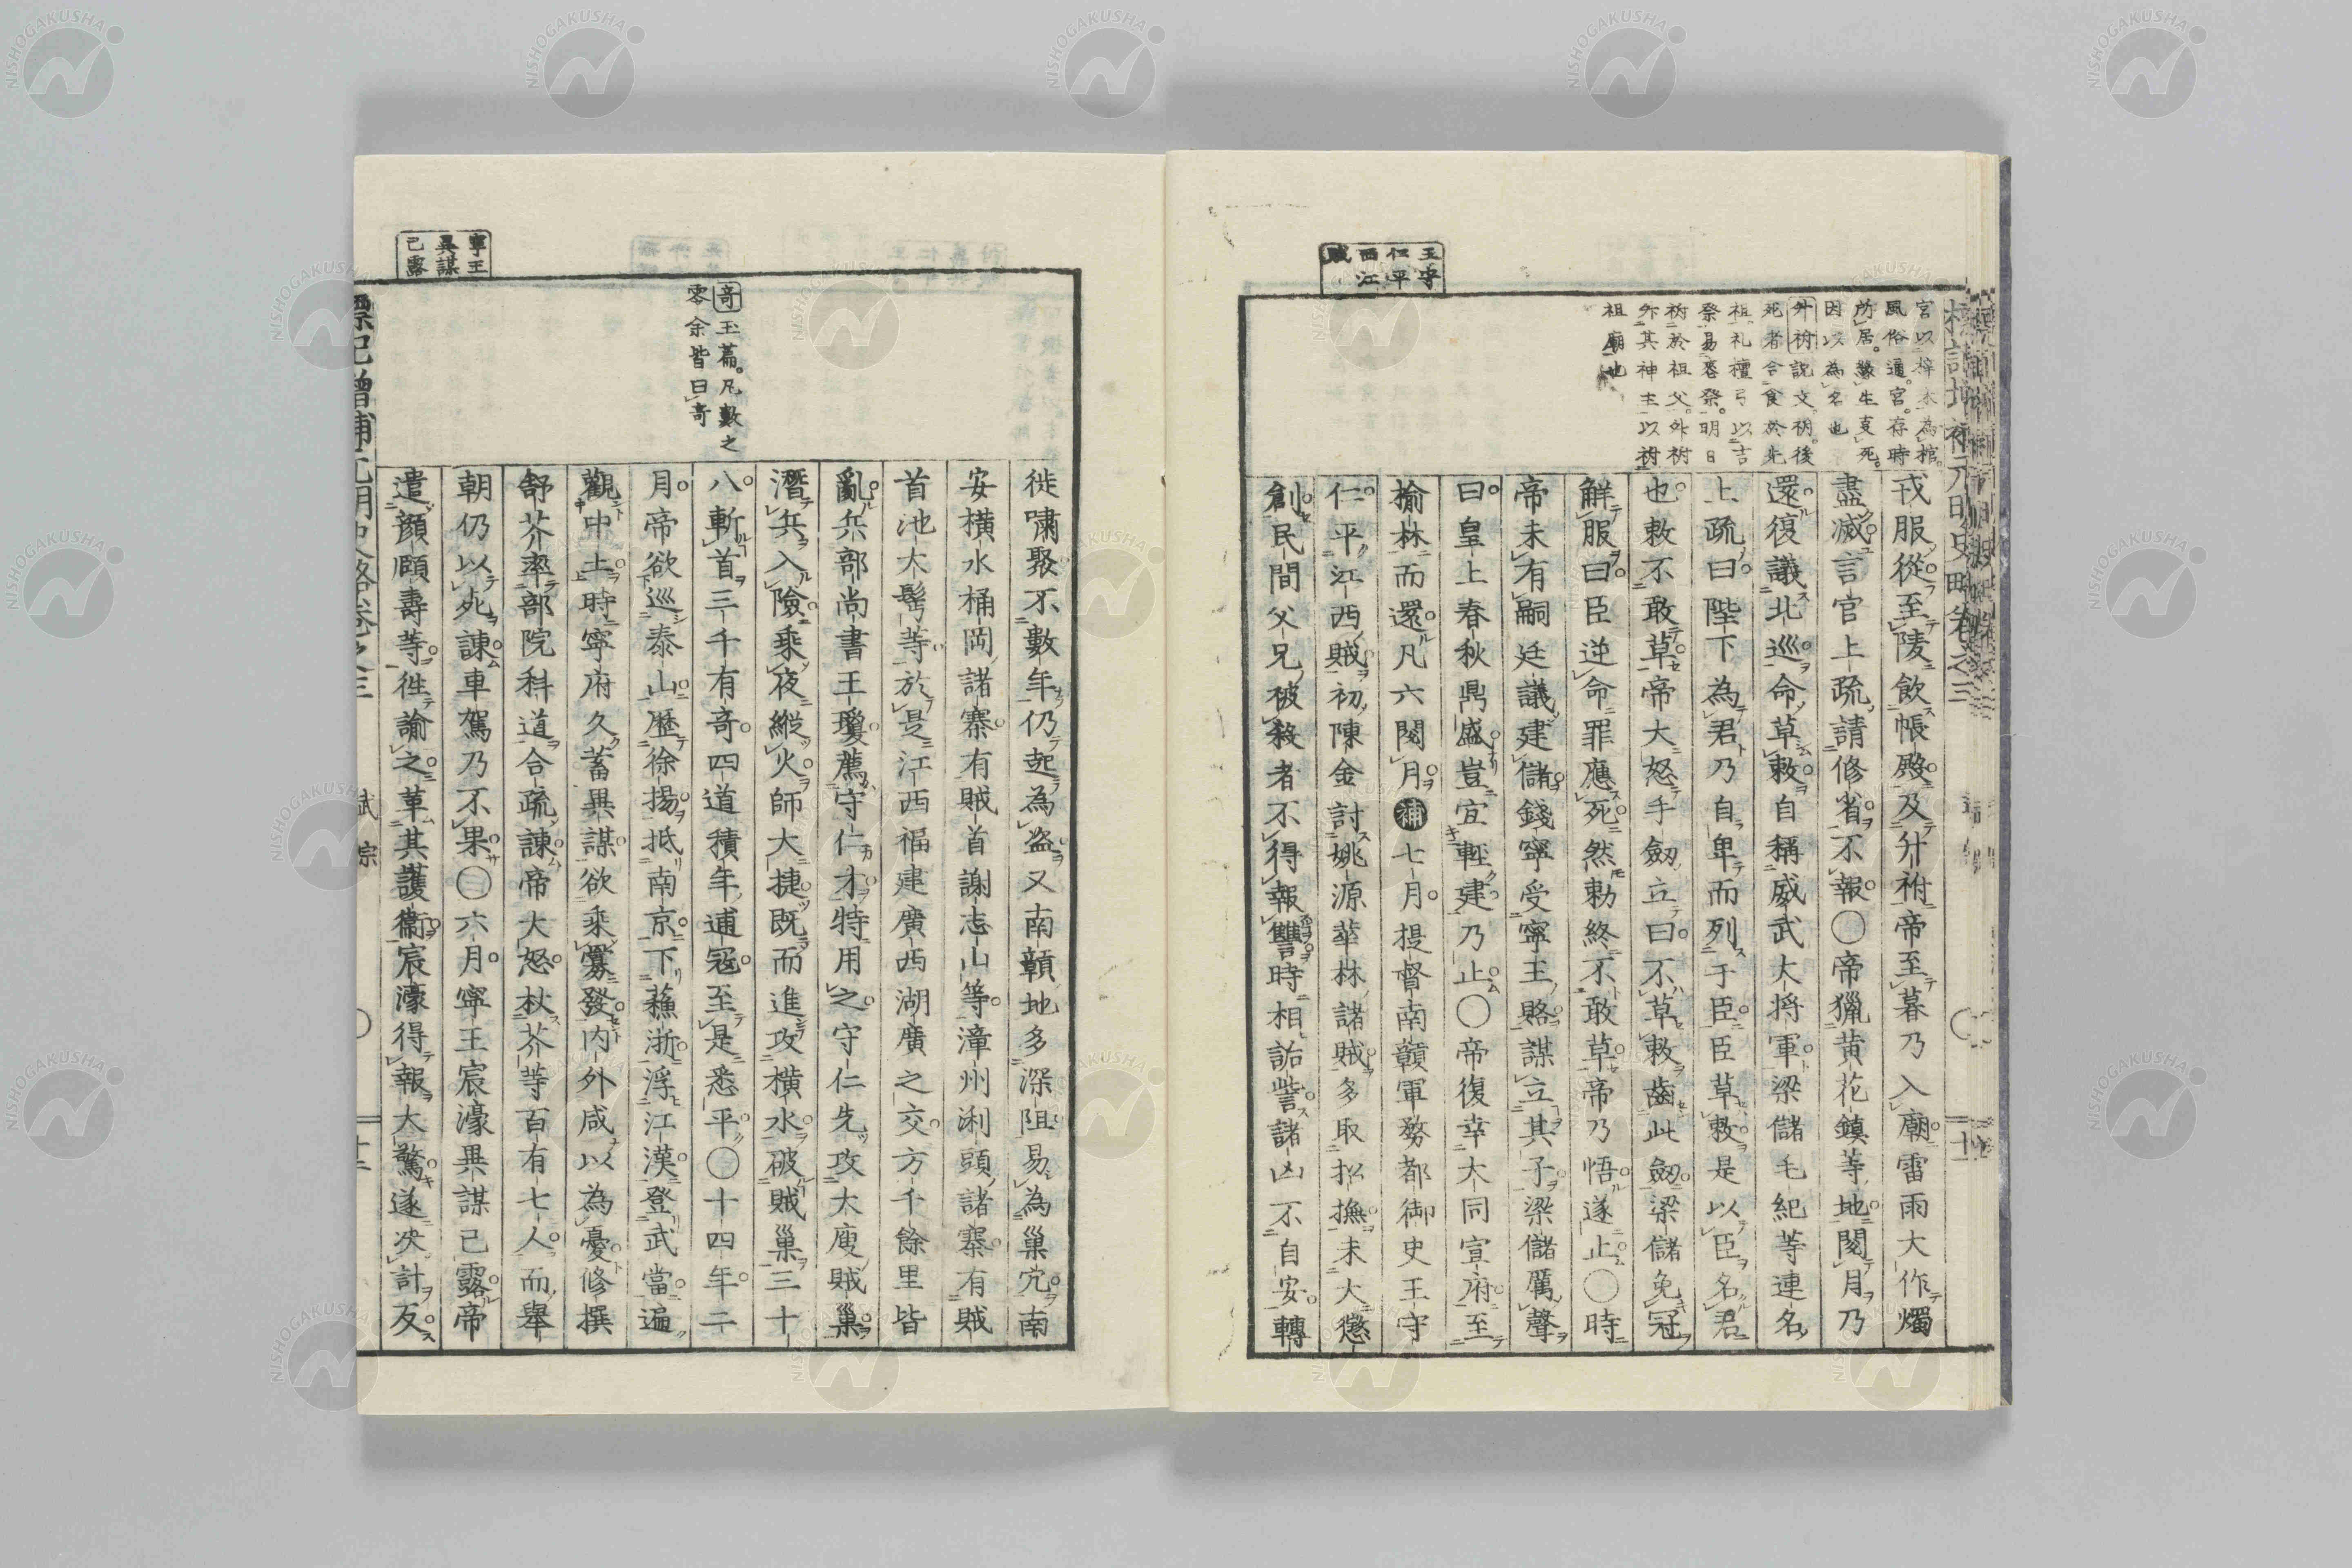 王守
仁平
西江
賊
宮以梓木為棺
風俗通。宮。存時
所居。緣生支死。
因以為名也
外祔說文。祔。後
死者合食於先
祖。礼檀弓。以吉
祭易喪祭。明日
祔於祖父。外祔
外其神主以祔
祖廟也
戎服從至陵飲帳殿及升祔帝至暮乃入廟雷雨大作燭
盡滅言官上疏請修省不報〇帝獵黄花鎮等地閱月乃
還復議北巡命草敕自稱威武大将軍梁儲毛紀等連名
上疏曰陛下為君乃自卑而列于臣臣草敕是以臣名君
也敕不敢草帝大怒手劔立曰不草敕齒此劔梁儲免冠
觧服曰臣逆命罪應死然勅終不敢草帝乃悟遂止〇時
帝未有嗣廷議建儲錢寧受寧王賂謀立其子梁儲厲聲
曰皇上春秋鼎盛豈宜輕建乃止〇帝復幸大同宣府至
揄林而還凡六閱月補七月提督南贛軍務都御史王守
仁平江西賊初陳金討姚源華林諸賊多取招撫未大懲
創民間父兄被殺者不得報讎時相詬訾諸凶不自安轉
徙嘯聚不數年仍起為盗又南贛地多深阻易為巢穴南
安橫水桶岡諸寨有賊首謝志山等漳州浰頭諸寨有賊
首池大鬂等於是江西福建廣西湖廣之交方千餘里皆
亂兵部尚書王瓊薦守仁才特用之守仁先攻大庾賊巢
潛兵入險乘夜縱火師大捷既而進攻橫水破賊巢三十
八斬首三千有奇四道積年逋冦至是悉平〇十四年二
月帝欲巡泰山歷徐揚抵南京下蘓浙浮江漢登武當遍
觀中土時寧府久蓄異謀欲乘釁發内外咸以為憂修撰
舒芥率部院科道合疏諫帝大怒杖芥等百有七人而舉
朝仍以死諫車駕乃不果〇六月寧王宸濠異謀已露帝
遣顔頤壽等徃諭之革其護衛宸濠得報大驚遂决計反
奇玉篇。凡數之
零余皆曰奇
寧王
異謀
已露
標記增補元明史略卷之三 武宗